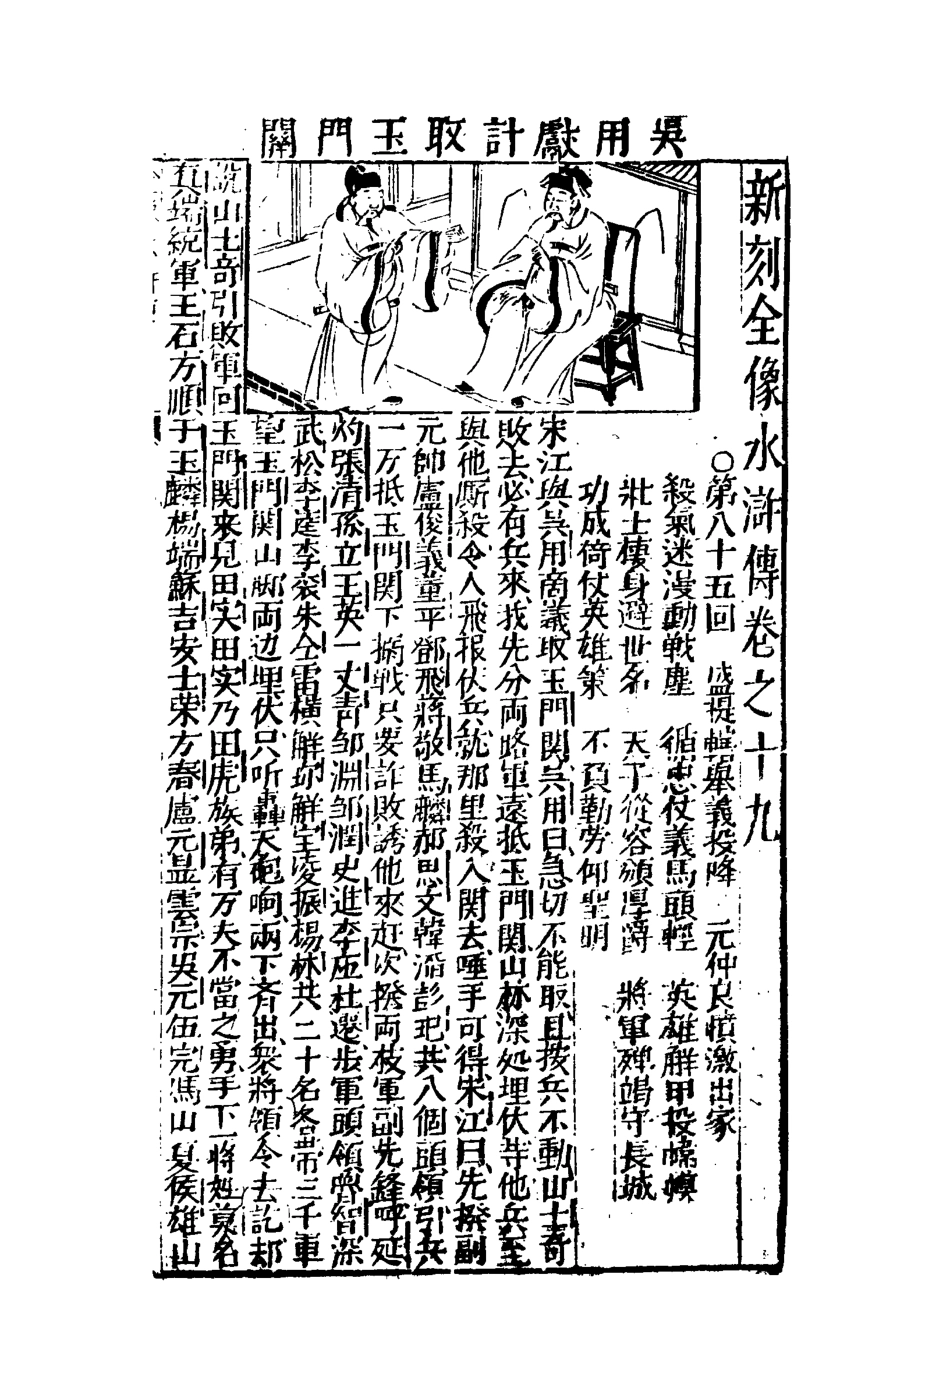 吳用獻計取玉門關
新刻全像水滸傳卷之十九
○第八十五回 盛提轄舉義投降 元仲良憤激出家
殺氣迷漫動戰塵 循忠仗義馬頭輕 英雄解甲投幃幙
壯士棲身避世名 天子從容頒厚爵 將軍殫竭守長城
功成倚仗英雄策 不負勤勞仰聖明
宋江與吳用商議取玉門関吳用曰急切不能取且按兵不動山士奇
敗去必有兵來我先分両路軍遠抵玉門関山林深处埋伏等他兵至
與他厮殺令人飛报伏兵就那里殺入関去唾手可得宋江曰先撥副
元帥盧俊義董平鄧飛蔣敬馬麟郝思文韓滔彭玘共八個頭領引兵
一万抵玉門関下搦戰只要詐敗誘他來赶次撥両枝軍副先鋒呼延
灼張清孫立王英一丈青邹淵邹潤史進李应杜遷步軍頭領魯智深
武松李逵李衮朱仝雷横解珍解宝凌振楊林共二十名各帶三千軍
望玉門関山脚両边埋伏只听轟天砲响両下齐出衆將領令去訖却
說山士奇引敗軍回玉門関来見田实田实乃田虎族弟有万夫不當之勇手下一將姓莫名
真端統軍王石方順于玉麟楊端蘇吉安士荣方春盧元昱雲宗吳元伍完馮山夏侯雄山